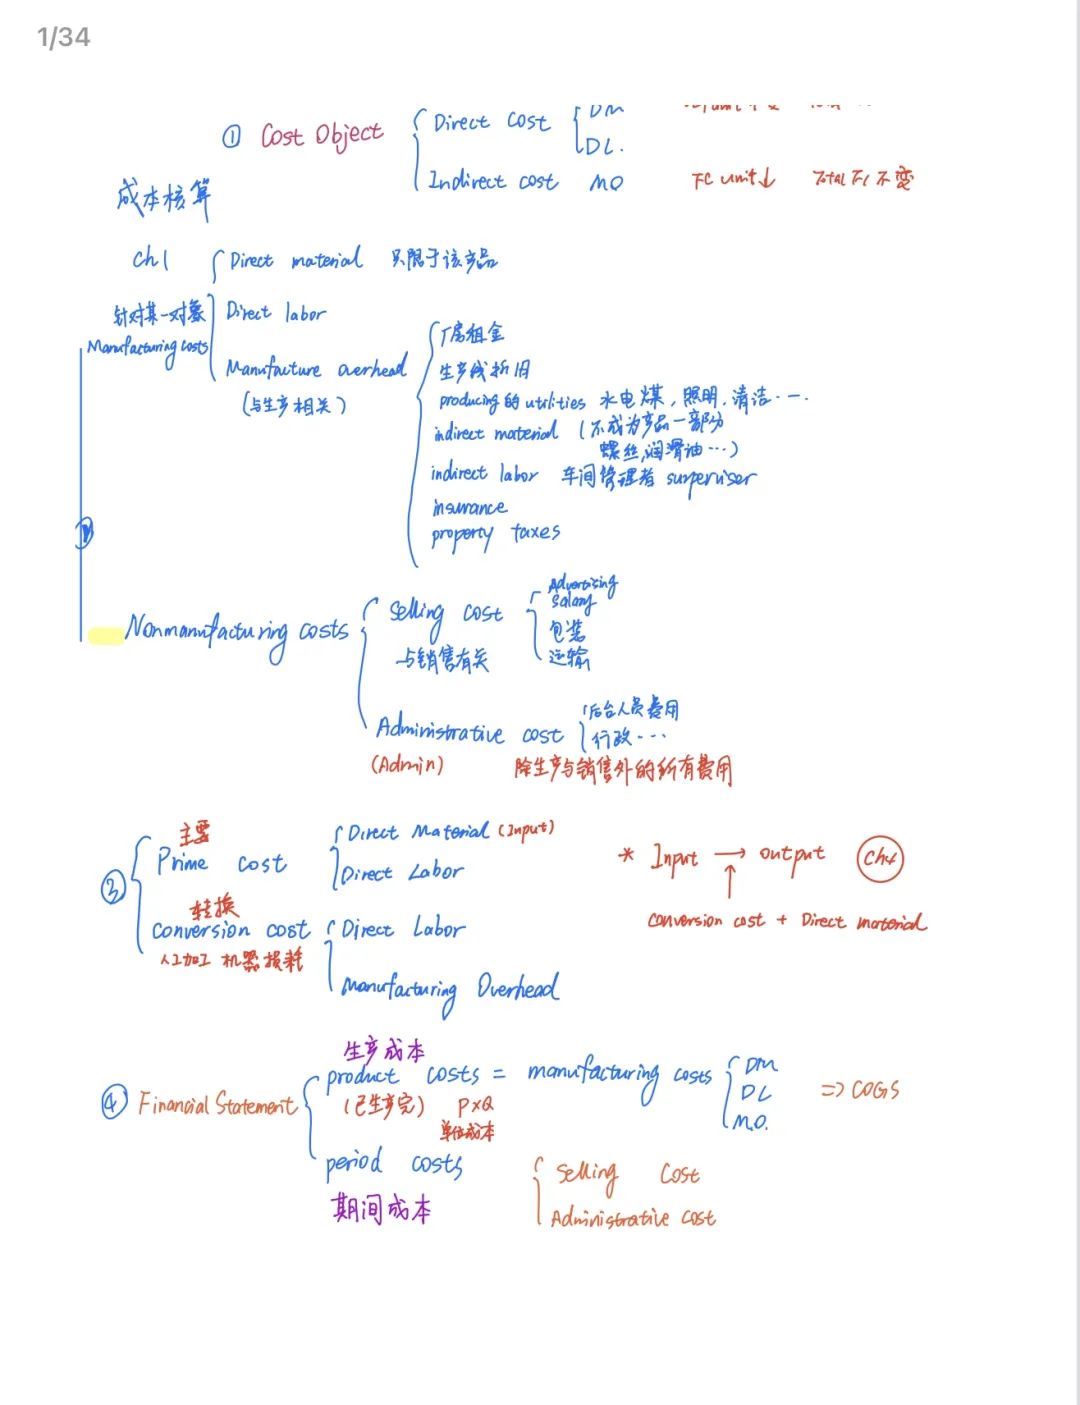 1/34
① Cost Object
Direct cost
DM
DL.
Indirect cost MO
FC unit↓ Total FC 不变
成本核算
ch1
Direct material 只限于该产品
针对某一对象
Direct labor
Manufacturing costs
Manufacture overhead
(与生产相关)
厂房租金
生产线折旧
producing的utilities 水电煤,照明,清洁···
indirect material (不成为产品一部分
螺丝,润滑油···)
indirect labor 车间管理者 surperviser
insurance
property taxes
②
Nonmanufacturing costs
Selling cost
与销售有关
Advertising
Salary
包装
运输
Administrative cost
(Admin)
后台人员费用
行政···
除生产与销售外的所有费用
③
主要
Prime cost
Direct Material (Input)
Direct Labor
转换
Conversion cost
人工加工 机器损耗
Direct Labor
Manufacturing Overhead
* Input → output ch4
↑
Conversion cost + Direct material
④ Financial Statement
生产成本
product costs = manufacturing costs
(已生产完) P×Q
单位成本
DM
DL
MO.
⇒ COGS
period costs
期间成本
Selling Cost
Administrative cost